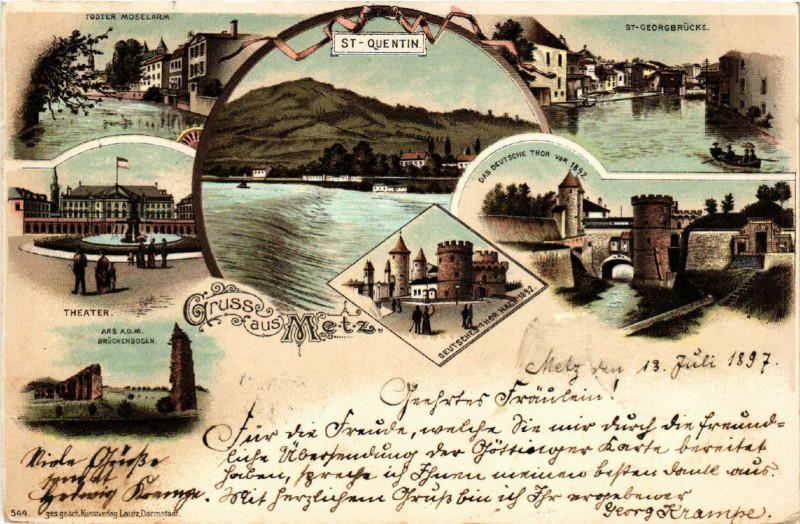 TODTER MOSELARM.
ST-QUENTIN.
ST-GEORGBRÜCKE.
DAS DEUTSCHE THOR VOR 1892.
THEATER.
DEUTSCHES-THOR NACH 1892.
Gruss aus Metz.
ARS A.D.M.
BRÜCKENBOGEN.
Metz den 13. Juli 1897.
Geehrtes Fräulein!
Für die Freude, welche Sie mir durch die freund-
liche Übersendung der Göttinger Karte bereitet
haben, spreche ich Ihnen meinen besten Dank aus.
Mit herzlichem Gruß bin ich Ihr ergebener
Georg Krampe.
Viele Grüße
Hedwig Krampe.
544. ges. gesch. Kunstverlag Lautz, Darmstadt.